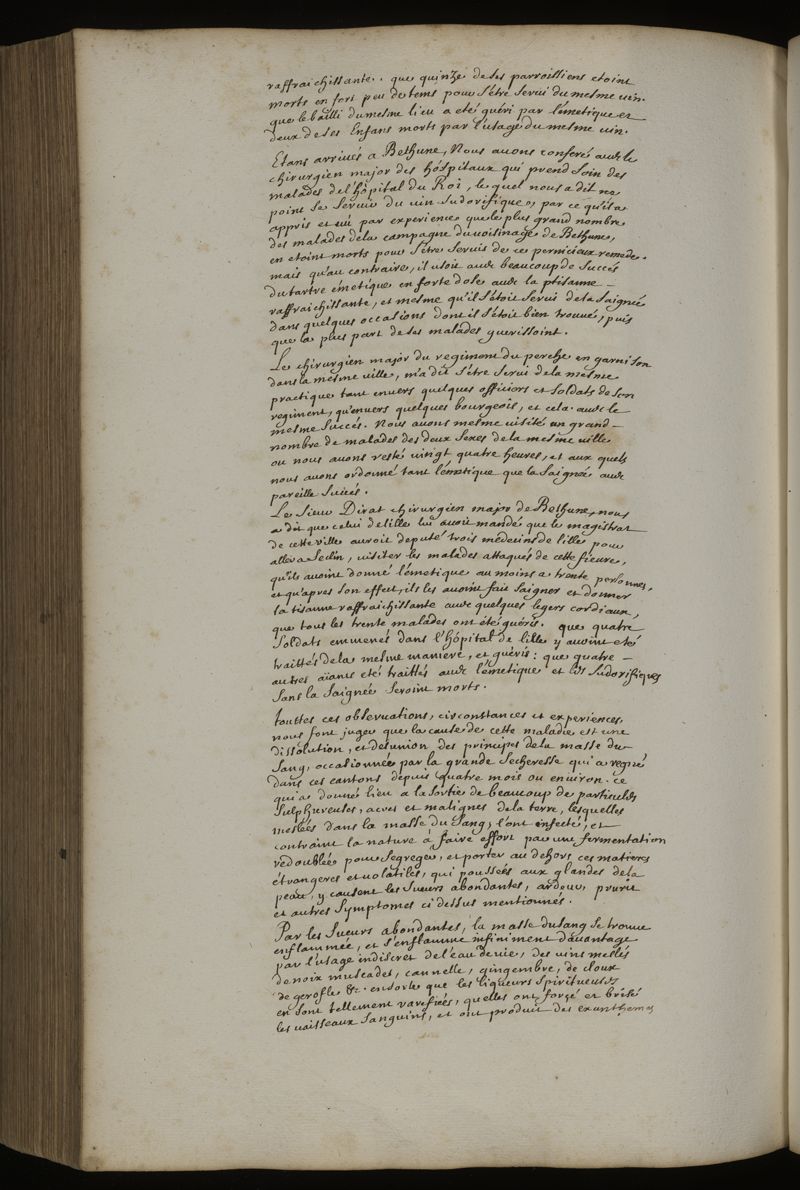 raffraichissante. que quinze de ses parroissiens etoint
morts en fort peu de tems pour s'étre servis du mesme vin.
que le bailli du mesme lieu a eté guéri par l'émetique et
deux de ses Enfans morts par l'usage du mesme vin.
Etans arrivés a Bethune, Nous avons conferé avec le
chirurgien major des hôspitaux qui prend soin des
malades de l'hôpital du Roi, le quel nous a dit ne
point se servir du vin sudorifique, par ce qu'il a
appris et vû par experience que le plus grand nombre
des malades de la campagne du voisinage de Bethune,
en etoint morts pour s'étre servis de ce pernicieux remede.
mais qu'au contraire, il usoit avec beaucoup de succés
du tartre émetique en forte dose avec la ptisanne
raffraichissante, et mesme qu'il s'étoit servi de la saignée
dans quelques occasions dont il s'étoit bien trouvé, puis
que la plus part de ses malades guerissoint.
Le chirurgien major du regiment du perche en garnison
dans la mesme ville, m'a dit s'étre servi de la mesme
practique tant envers quelques officiers et soldats de son
regiment, qu'envers quelques bourgeois, et cela avec le
mesme succés. Nous avons mesme visité un grand
nombre de malades des deux sexes de la mesme ville
ou nous avons resté vingt quatre heures, et aux quels
nous avons ordonné tant l'émetique que la saignée avec
pareille succés.
Le sieur Dirat chirurgien major de Bethune, nous
a dit que celui de lille lui avoit mandé que le magistrat
de cette ville avoit deputé trois medecins de lille pour
aller a Seclin, visiter les malades attaqués de cette fievre,
qu'ils avoint donné l'émetique au moins a trente personnes,
et qu'apres son effect, ils les avoint fait saigner et donner
la tisanne raffraichissante avec quelques legers cordiaux,
que tous les trente malades ont été guéris. que quatre
soldats emmenés dans l'hôpital de lille y avoint eté
traittés de la mesme maniere, et guéris : que quatre
autres aïants eté traittés avec l'émetique et les sudorifiques
sans la saignée seroint morts.
touttes ces observations, circonstances et experiences,
nous font juger que la cause de cette maladie est une
dissolution, et desunion des principes de la masse du
sang, occasionnée par la grande secheresse qui a regné
dans ces cantons depuis quatre mois ou environ. ce
qui a donné lieu a la sortie de beaucoup de particules
sulphureuses, acres et malignes de la terre, lesquelles
meslées dans la masse du sang, l'ont infecté, et
contraint la nature à faire effort par une fermentation
redoublée pour segreger, et porter au dehors ces matieres
étrangeres et volatiles, qui poussées aux glandes de la
peau, y causent les sueurs abondantes, ardeur, prurit
et autres symptomes ci dessus mentionnés.
Par les sueurs abondantes, la masse du sang se trouve
enflammée, et s'enflamme infiniment davantage
par l'usage indiscret de l'eau de vie, des vins meslés
de noix muscades, cannelle, gingembre, de cloux
de gerofle &c. ensorte que les liqueurs spiritueuses
en sont tellement rarefiées, quelles ont forcé et brisé
les vaisseaux sanguins, et ont produit des exanthemes